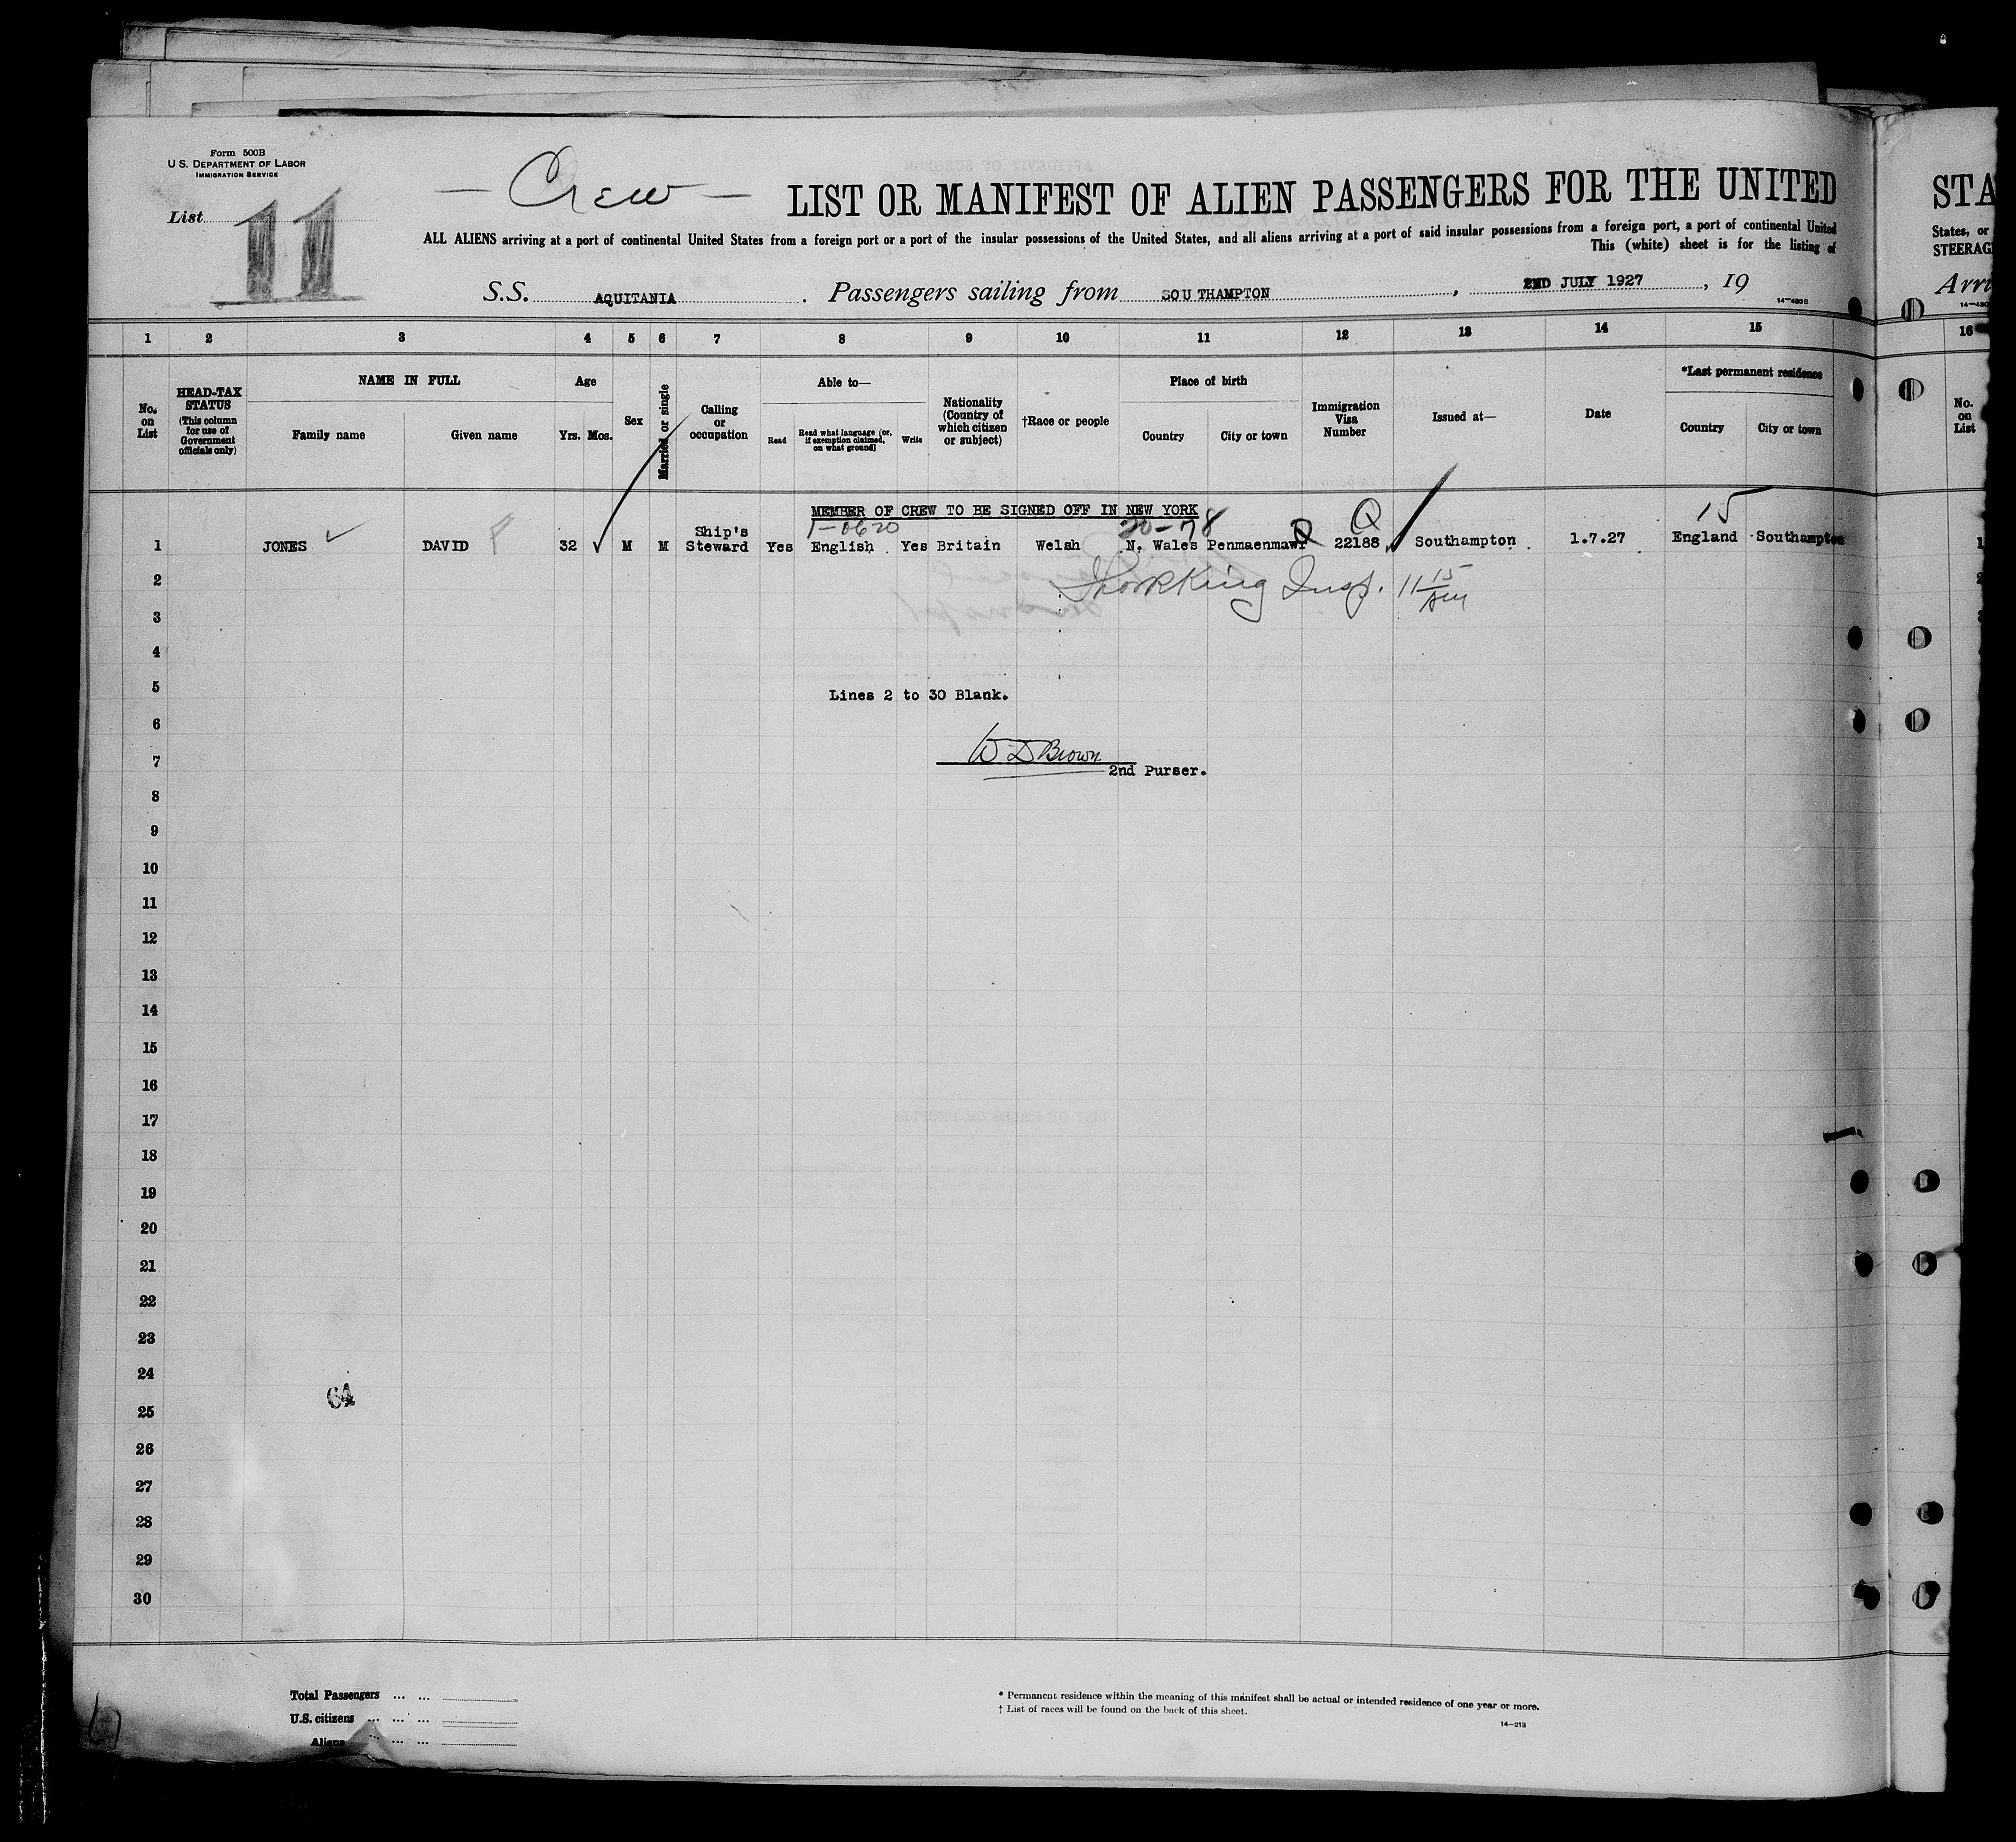 Form 500B
U.S. DEPARTMENT OF LABOR
IMMIGRATION SERVICE
List 11
— Crew — LIST OR MANIFEST OF ALIEN PASSENGERS FOR THE UNITED
STA
ALL ALIENS arriving at a port of continental United States from a foreign port or a port of the insular possessions of the United States, and all aliens arriving at a port of said insular possessions from a foreign port, a port of continental United
States, or
This (white) sheet is for the listing of
STEERAG
S.S. AQUITANIA. Passengers sailing from SOUTHAMPTON, 2ND JULY 1927, 19
Arri
14-430B
1 2 3 4 5 6 7 8 9 10 11 12 13 14 15
16
No. on List
HEAD-TAX STATUS (This column for use of Government officials only)
NAME IN FULL
Family name
Given name
Age
Yrs. Mos.
Sex
Married or single
Calling or occupation
Able to—
Read
Read what language (or, if exemption claimed, on what ground)
Write
Nationality (Country of which citizen or subject)
†Race or people
Place of birth
Country
City or town
Immigration Visa Number
Issued at—
Date
*Last permanent residence
Country
City or town
No. on List
MEMBER OF CREW TO BE SIGNED OFF IN NEW YORK
1-0620 20-78 Q 15
1 JONES DAVID P 32 M M Ship's Steward Yes English Yes Britain Welsh N. Wales Penmaenmawr 22188 Southampton 1.7.27 England Southampton
2
Insp. 11 15 AM
3
4
5
Lines 2 to 30 Blank.
6
W D Brown
7
2nd Purser.
8
9
10
11
12
13
14
15
16
17
18
19
20
21
22
23
24
64
25
26
27
28
29
30
Total Passengers ... ...
U.S. citizens ... ... ...
Aliens ... ...
* Permanent residence within the meaning of this manifest shall be actual or intended residence of one year or more.
† List of races will be found on the back of this sheet.
14-213